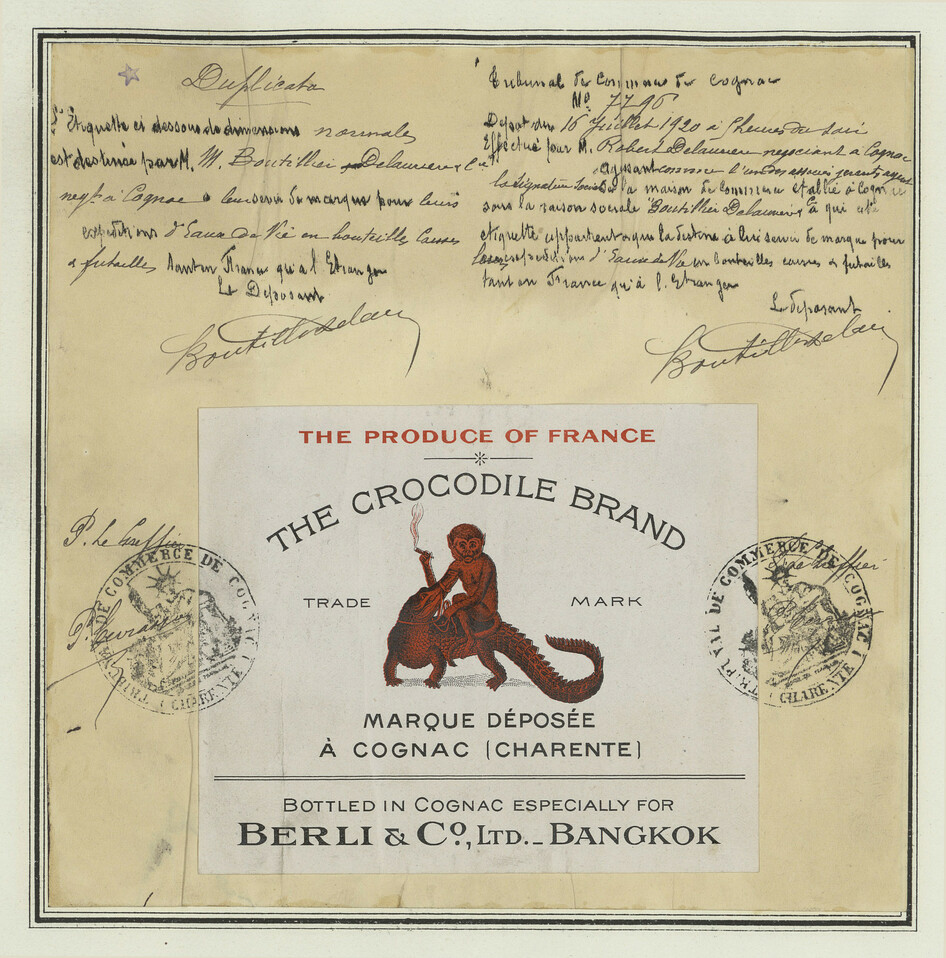 Duplicata
L'Etiquette ci dessous de dimensions normales
est destinée par M. M. Boutillier Delaurière & Cie
negts à Cognac a leur servir de marque pour leurs
expeditions d'Eaux de Vie en bouteilles Caisses
& futailles tant en France qu'a l'Etranger
Le Deposant
Tribunal de Commerce de Cognac
No 7796
Depot du 16 Juillet 1920 à heures du soir
Effectué par M. Robert Delaurière negociant à Cognac
agissant comme l'un des associés gerants ayant
la signature sociale de la maison de Commerce etablie à Cognac
sous la raison sociale Boutillier Delaurière & à qui cette
etiquette appartient & qui la destine à lui servir de marque pour
ses expeditions d'Eaux de Vie en bouteilles caisses & futailles
tant en France qu'à l'Etranger
Le deposant
THE PRODUCE OF FRANCE
THE CROCODILE BRAND
TRADE MARK
MARQUE DÉPOSÉE
À COGNAC (CHARENTE)
BOTTLED IN COGNAC ESPECIALLY FOR
BERLI & Co., LTD._BANGKOK
P. Le Greffier
TRIBUNAL DE COMMERCE DE COGNAC
(CHARENTE)
Le Greffier
TRIBUNAL DE COMMERCE DE COGNAC
(CHARENTE)